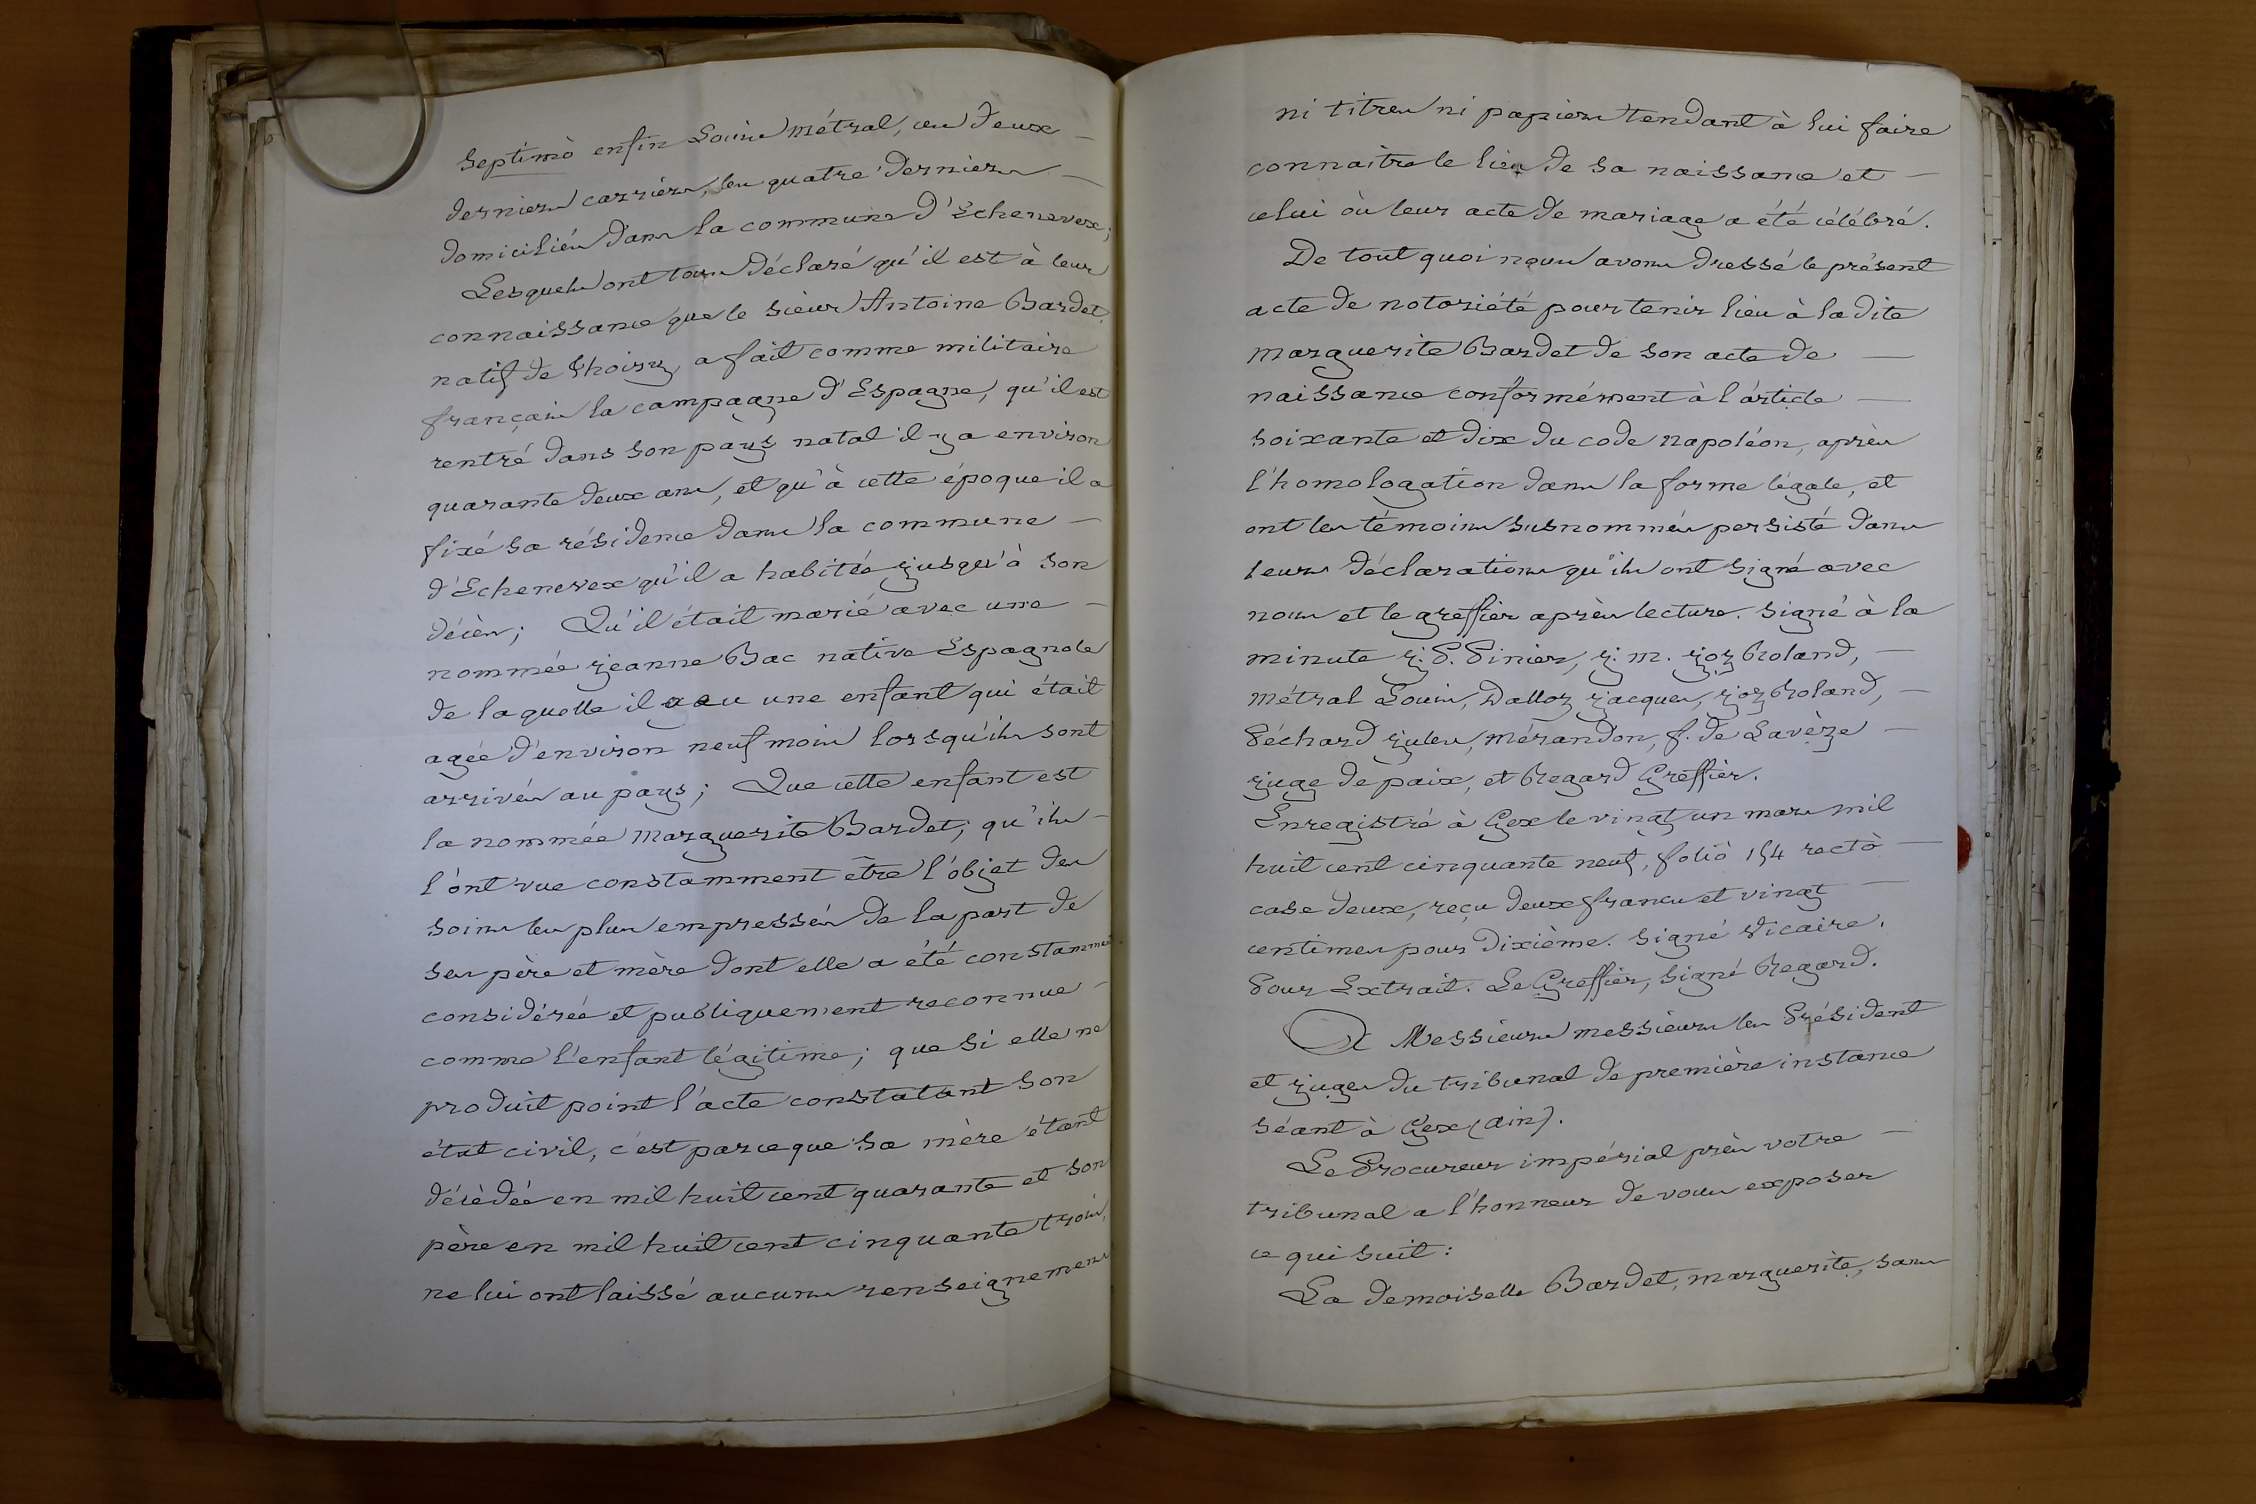 Septimò enfin Louis Métral, ces deux
derniers carriers, les quatre derniers
domiciliés dans la commune d'Echenevex;
Lesquels ont tous déclaré qu'il est à leur
connaissance que le sieur Antoine Bardet,
natif de Thoiry, a fait comme militaire
français la campagne d'Espagne, qu'il est
rentré dans son pays natal il y a environ
quarante deux ans, et qu'à cette époque il a
fixé sa résidence dans la commune
d'Echenevex qu'il a habitée jusqu'à son
décès; Qu'il était marié avec une
nommée jeanne Bac native Espagnole
de laquelle il a eu une enfant qui était
agée d'environ neuf mois lorsqu'ils sont
arrivés au pays; Que cette enfant est
la nommée Marguerite Bardet; qu'ils
l'ont vue constamment être l'objet des
soins les plus empressés de la part de
ses père et mère dont elle a été constamment
considérée et publiquement reconnue
comme l'enfant légitime; que si elle ne
produit point l'acte constatant son
état civil, c'est parceque sa mère étant
décèdée en mil huit cent quarante et son
père en mil huit cent cinquante trois,
ne lui ont laissé aucuns renseignemens
ni titres ni papiers tendant à lui faire
connaitre le lieu de sa naissance et
celui où leur acte de mariage a été célébré.
De tout quoi nous avons dressé le présent
acte de notoriété pour tenir lieu à la dite
Marguerite Bardet de son acte de
naissance conformément à l'article
soixante et dix du code napoléon, après
l'homologation dans la forme légale, et
ont les témoins susnommés persisté dans
leurs déclarations qu'ils ont signé avec
nous et le greffier après lecture. signé à la
minute j. P. Pinier, j. m. joz Roland,
Métral Louis, Dalloz jacques, joz Roland,
Péchard jules, Mérandon, f. de Lavèze
juge de paix, et Regard Greffier.
Enregistré à Gex le vingt un mars mil
huit cent cinquante neuf, folio 154 rectò
case deux, reçu deux francs et vingt
centimes pour dixième. signé Vicaire.
Pour Extrait. Le Greffier, signé Regard.
A Messieurs messieurs les Président
et juges du tribunal de première instance
séant à Gex (ain).
Le Procureur impérial près votre
tribunal a l'honneur de vous exposer
ce qui suit:
La demoiselle Bardet, marguerite, sans